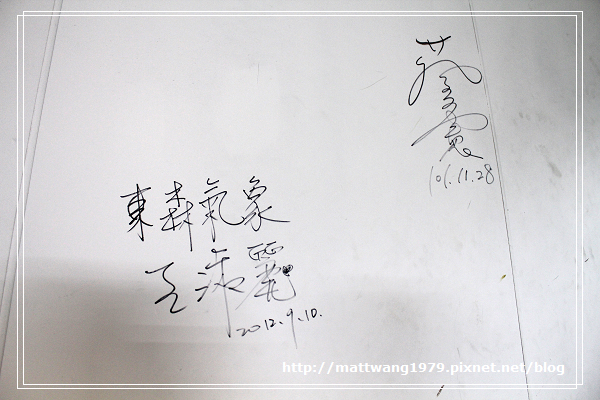 蔡
101.11.28
東森氣象
王淑麗
2012.9.10.
http://mattwang1979.pixnet.net/blog